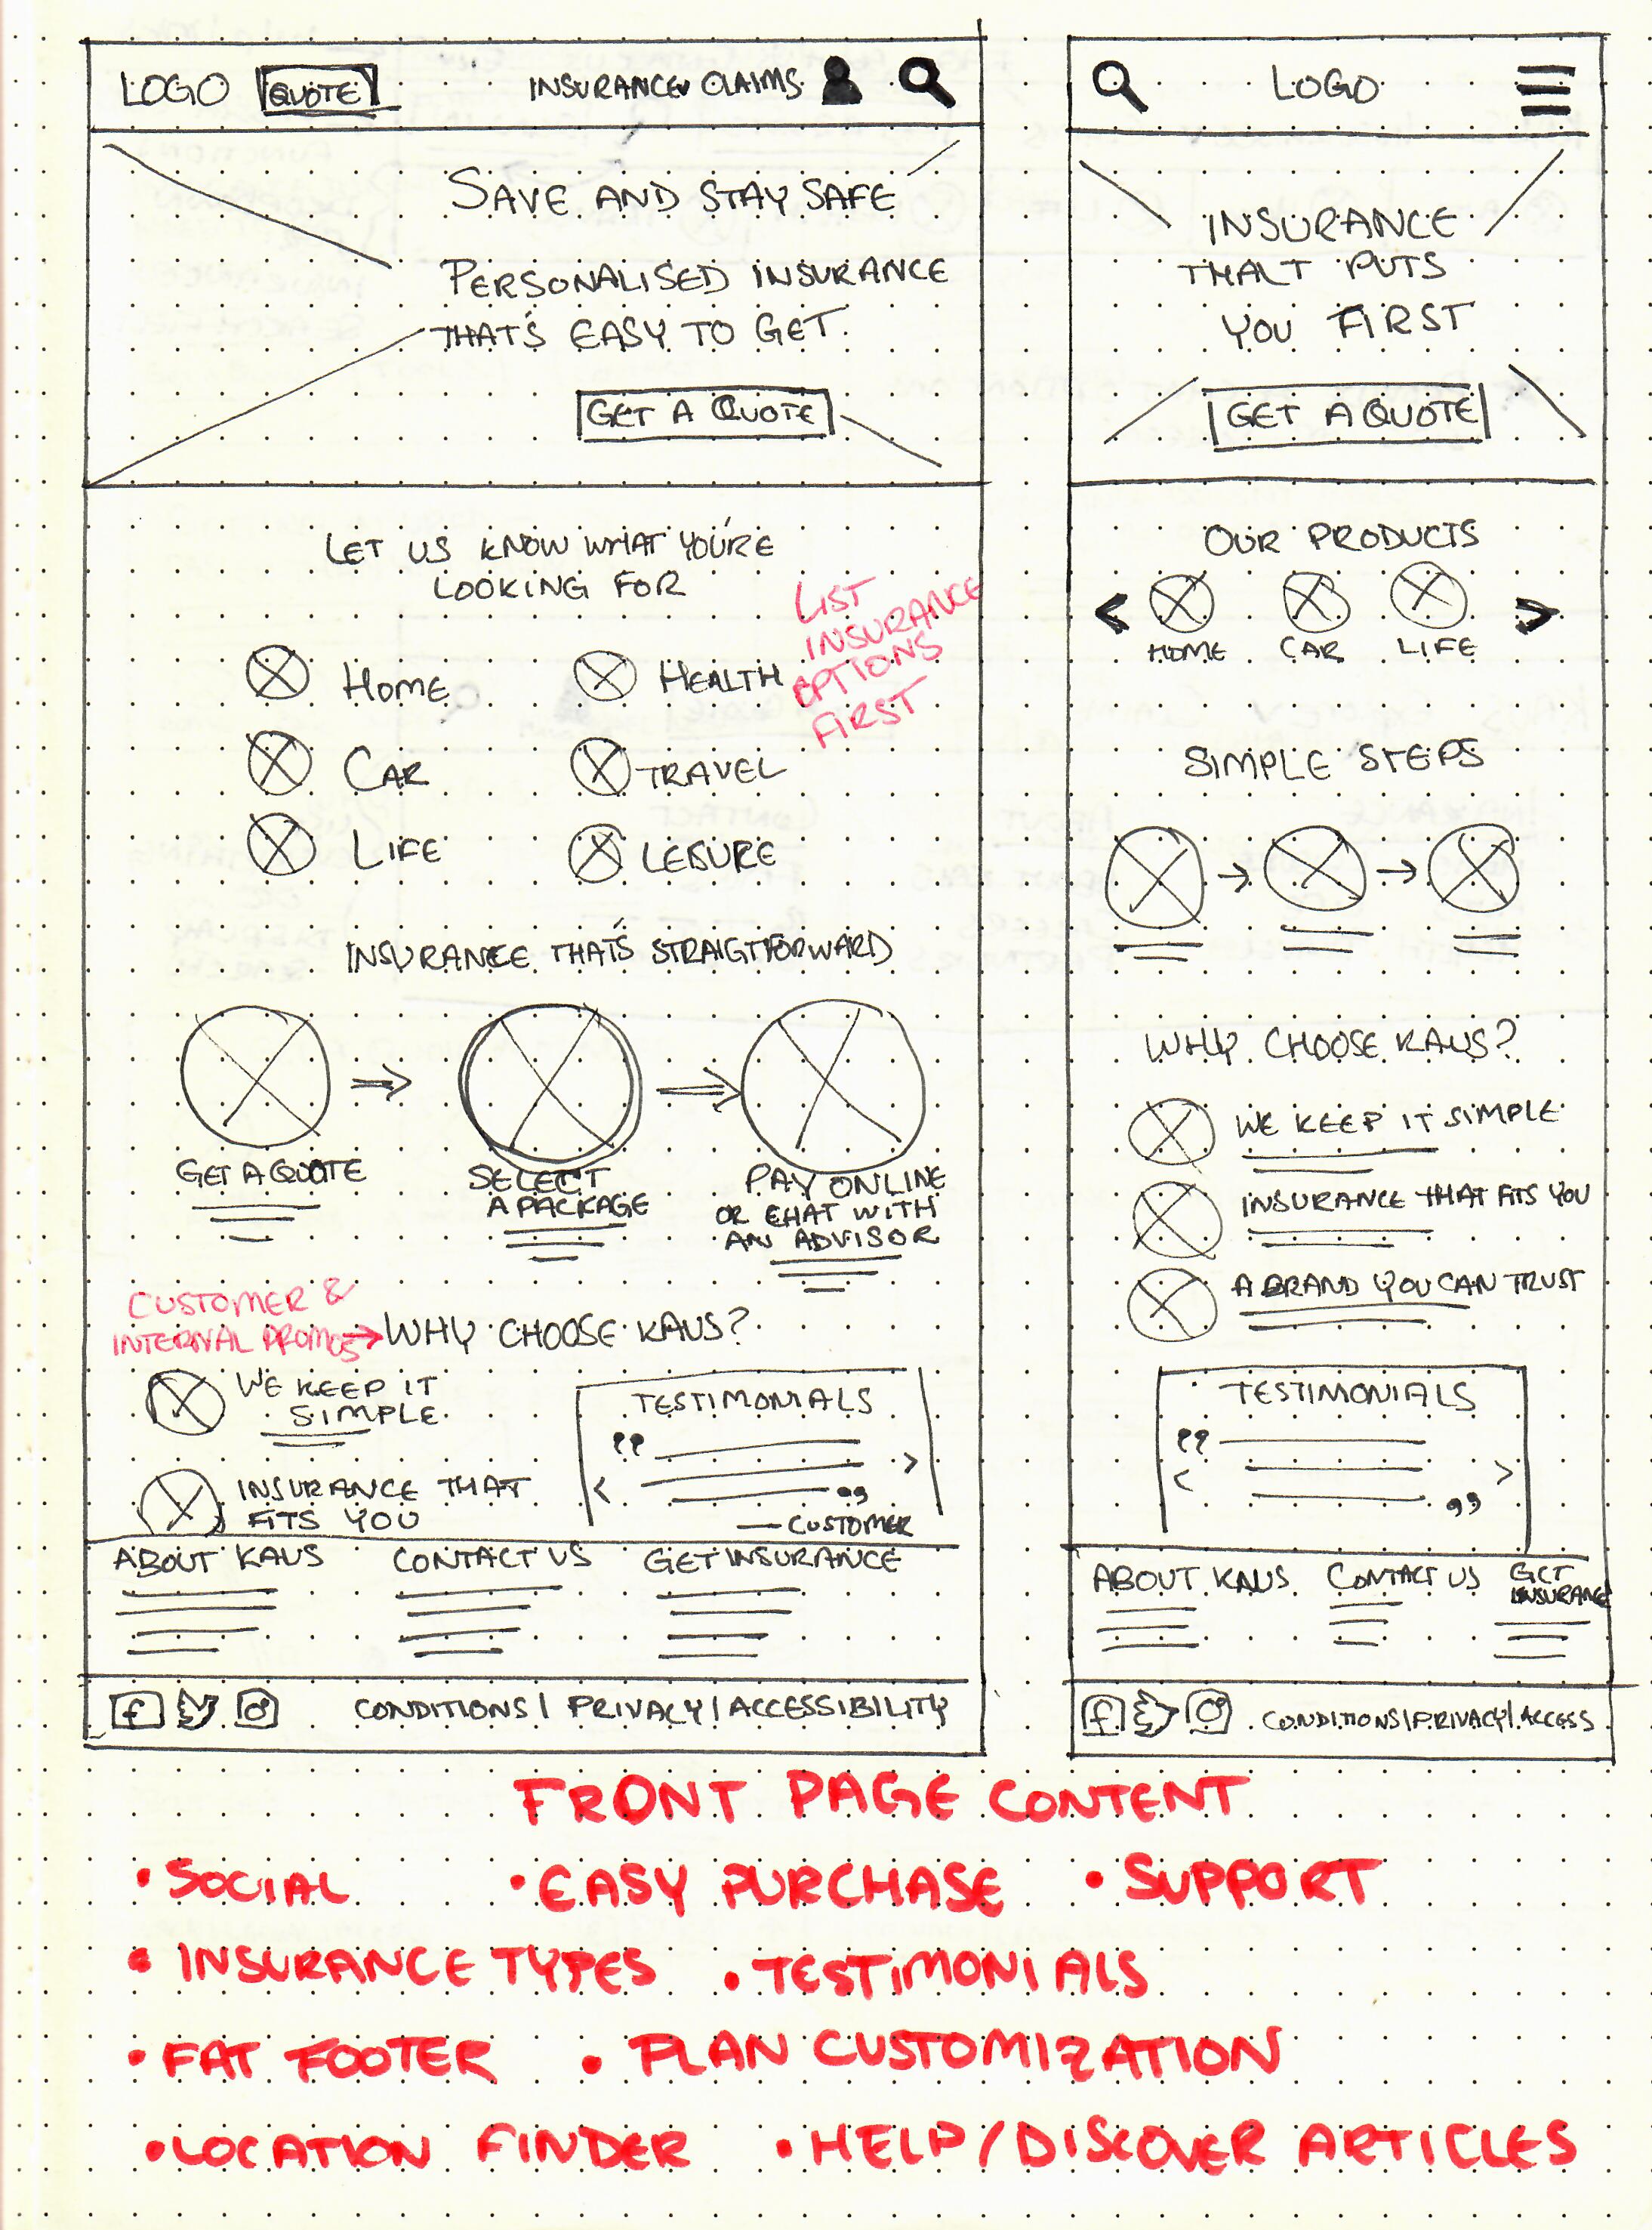 LOGO QUOTE INSURANCE CLAIMS
SAVE AND STAY SAFE
PERSONALISED INSURANCE
THAT'S EASY TO GET.
GET A QUOTE
LET US KNOW WHAT YOU'RE
LOOKING FOR
LIST
INSURANCE
OPTIONS
FIRST
HOME HEALTH
CAR TRAVEL
LIFE LEISURE
INSURANCE THAT'S STRAIGTFORWARD
GET A QUOTE
SELECT
A PACKAGE
PAY ONLINE
OR CHAT WITH
AN ADVISOR
CUSTOMER &
INTERNAL PROMOS → WHY CHOOSE KAUS?
WE KEEP IT
SIMPLE
INSURANCE THAT
FITS YOU
TESTIMONIALS
— CUSTOMER
ABOUT KAUS CONTACT US GET INSURANCE
CONDITIONS | PRIVACY | ACCESSIBILITY
LOGO
INSURANCE
THAT PUTS
YOU FIRST
GET A QUOTE
OUR PRODUCTS
< HOME CAR LIFE >
SIMPLE STEPS
WHY CHOOSE KAUS?
WE KEEP IT SIMPLE
INSURANCE THAT FITS YOU
A BRAND YOU CAN TRUST
TESTIMONIALS
ABOUT KAUS CONTACT US GET
INSURANCE
CONDITIONS | PRIVACY | ACCESS
FRONT PAGE CONTENT
• SOCIAL • EASY PURCHASE • SUPPORT
• INSURANCE TYPES • TESTIMONIALS
• FAT FOOTER • PLAN CUSTOMIZATION
• LOCATION FINDER • HELP/DISCOVER ARTICLES